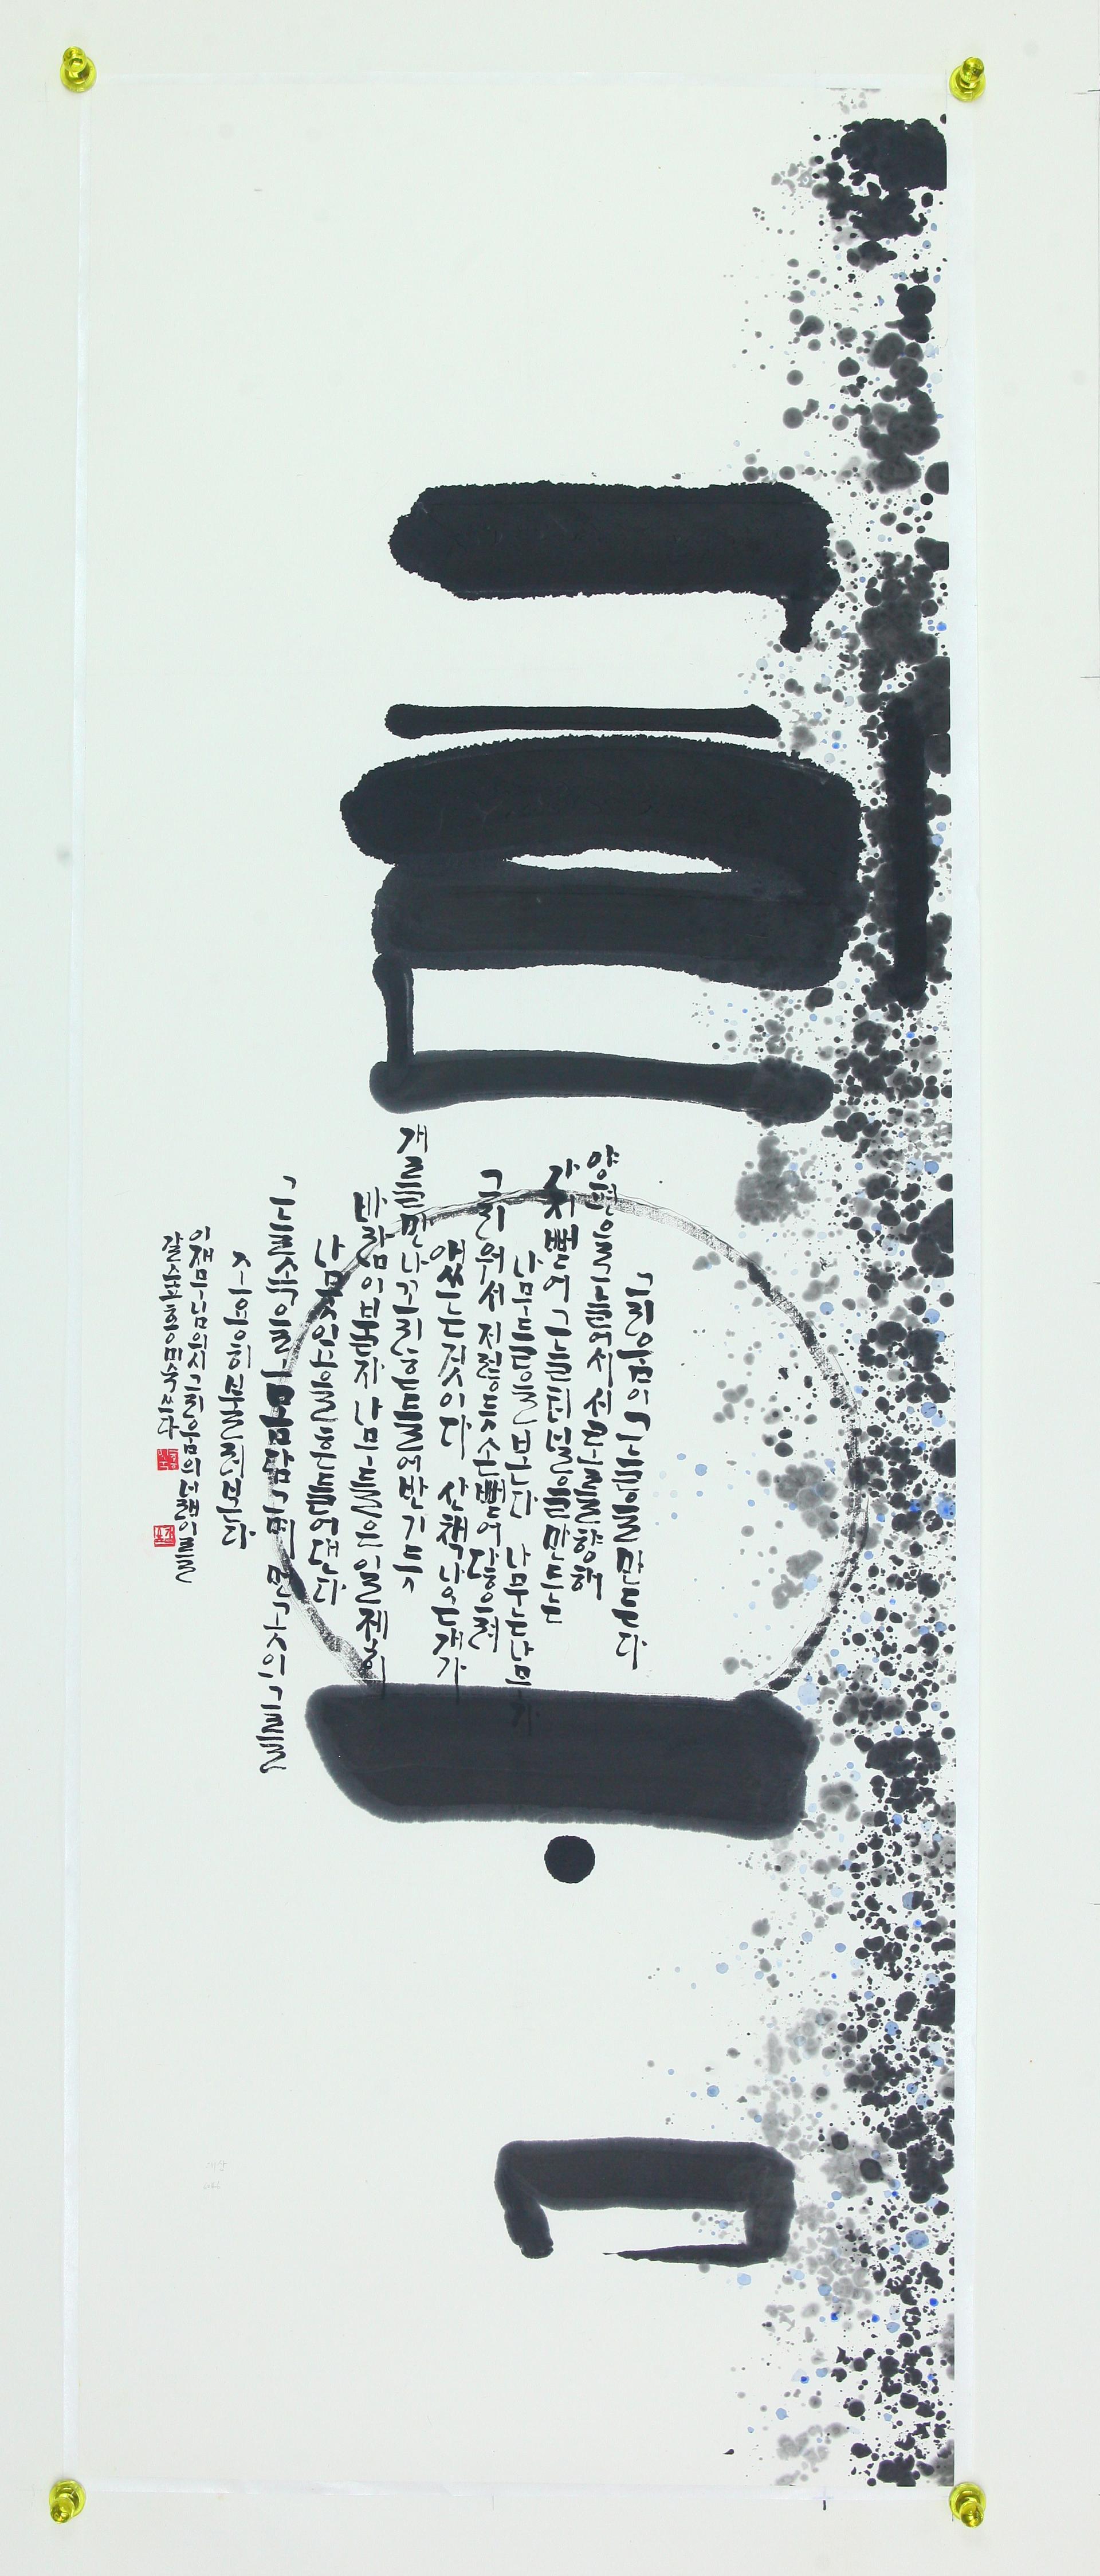 그리움이 그늘을 만든다
양편으로 늘어서서 서로를 향해
가지 뻗어 그늘 터널을 만드는
나무들을 본다 나무는 나무가
그리워서 저렇듯 손 뻗어 닿으려
애쓰는 것이다 산책 나온 개가
개를 만나 꼬리 흔들어 반기듯
바람이 불자 나무들은 일제히
나뭇잎을 흔들어 댄다
그늘 속을 몸 담그며 먼 곳의
조용히 불러본다
이재무님의 시 그리움의 넓이를
갈숲 홍미숙 쓰다